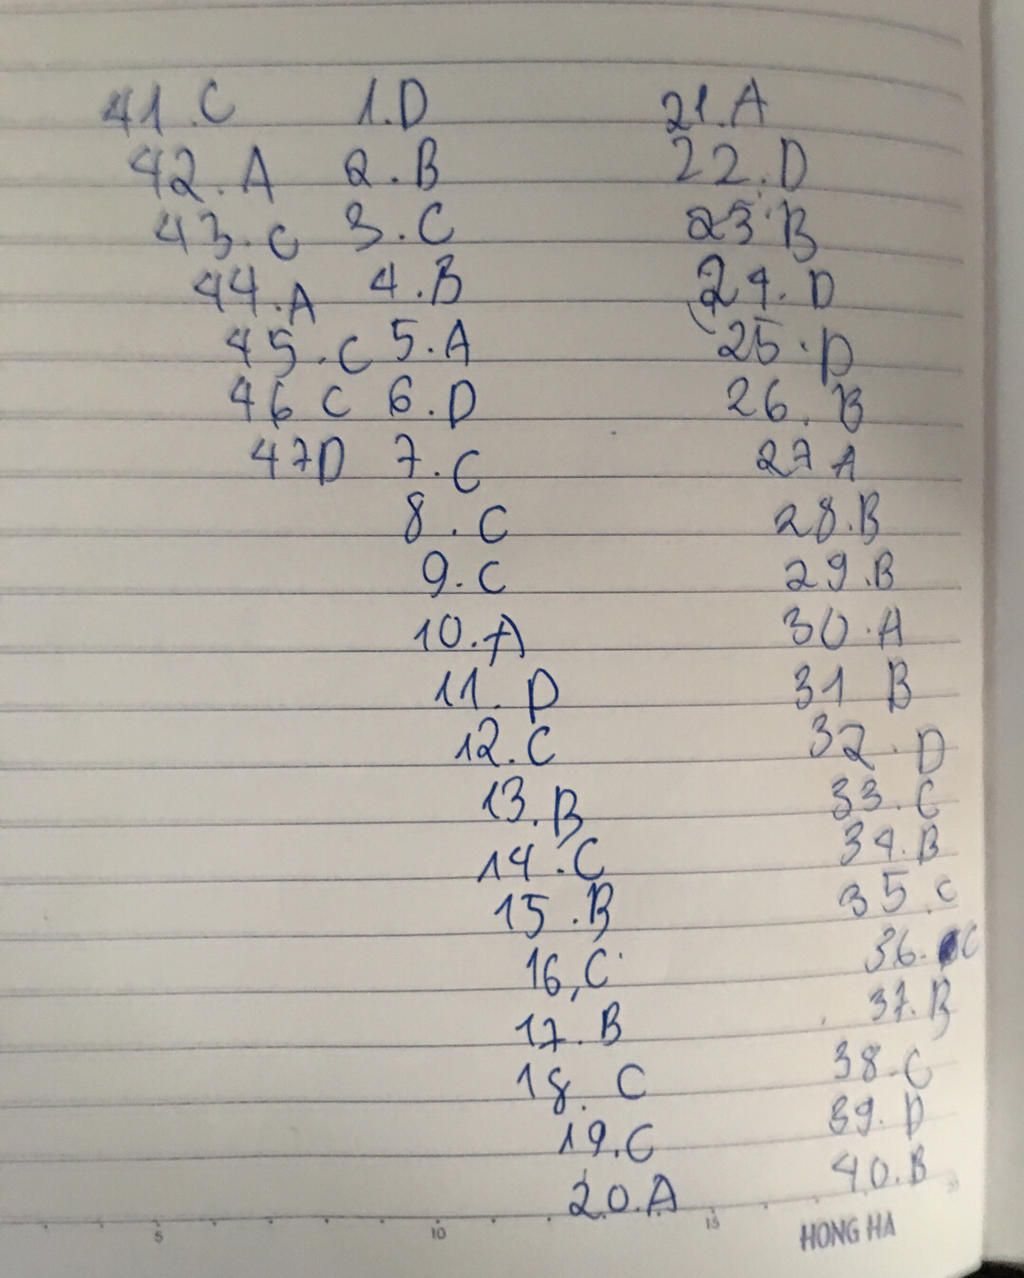 41.C 1.D 21.A
42.A 2.B 22.D
43.C 3.C 23.B
44.A 4.B 24.D
45.C 5.A 25.D
46 C 6.D 26.B
47D 7.C 27 A
8.C 28.B
9.C 29.B
10.A 30.A
11.D 31 B
12.C 32.D
13.B 33.C
14.C 34.B
15.B 35.C
16,C 36.C
17.B 37.B
18.C 38.C
19.C 39.D
20.A 40.B
5 10 15 20
HONG HA